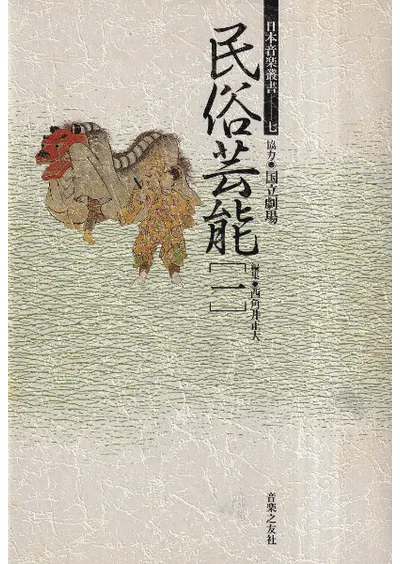 日本音楽叢書――七
協力●国立劇場
民俗芸能[一]
編集●西角井正大
音楽之友社